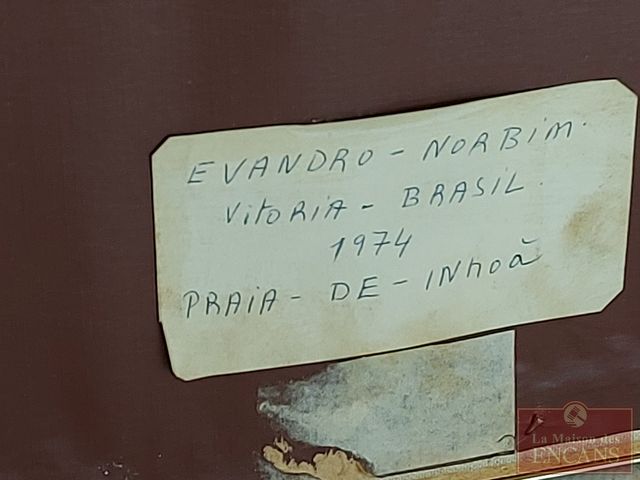 EVANDRO - NORBIM.
VitORiA - BRASIL.
1974
PRAiA - DE - INHOÃ
La Maison des
ENCANS